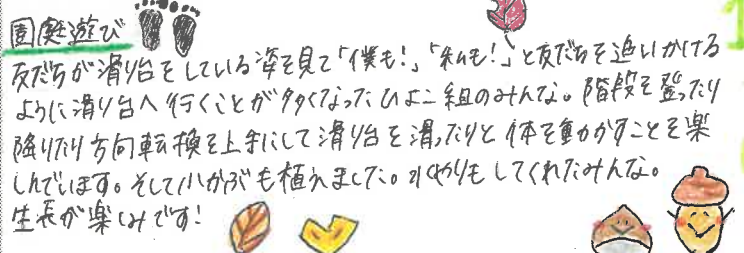 園庭遊び
友だちが滑り台をしている姿を見て「僕も!」「私も!」と友だちを追いかける
ように滑り台へ行くことが多くなったひよこ組のみんな。階段を登ったり
降りたり方向転換を上手にして滑り台を滑ったりと体を動かすことを楽
しんでいます。そして小かぶも植えました。水やりもしてくれたみんな。
生長が楽しみです!